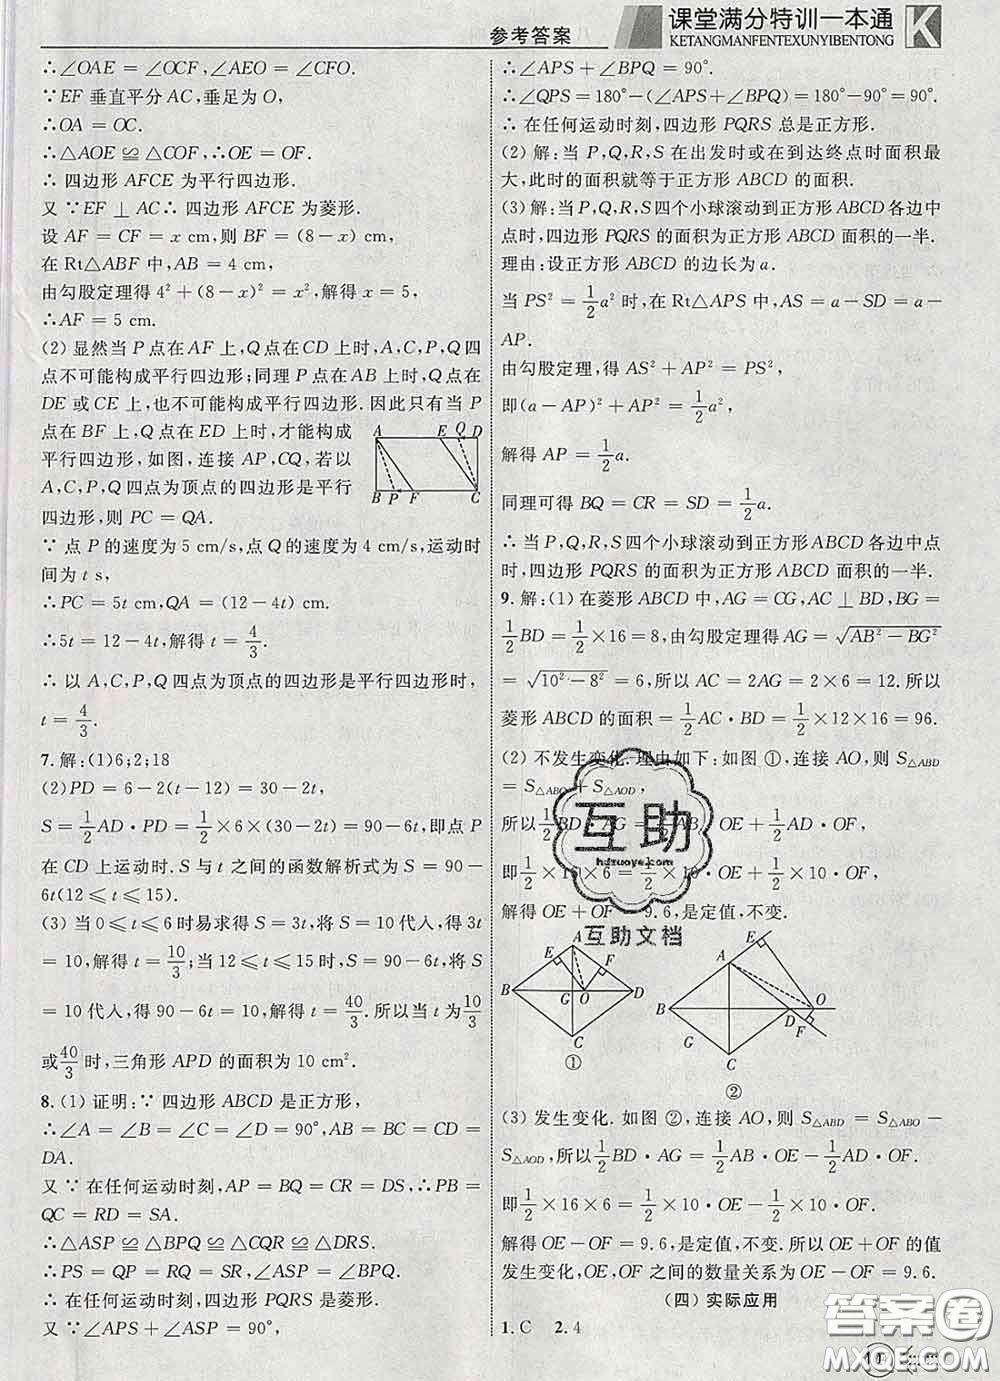 参考答案
课堂满分特训一本通
KETANGMANFENTEXUNYIBENTONG
K
∴∠OAE=∠OCF,∠AEO=∠CFO.
∵EF 垂直平分 AC,垂足为 O,
∴OA=OC.
∴△AOE≌△COF,∴OE=OF.
∴ 四边形 AFCE 为平行四边形.
又 ∵EF⊥AC∴ 四边形 AFCE 为菱形.
设 AF=CF=x cm,则 BF=(8-x) cm,
在 Rt△ABF 中,AB=4 cm,
由勾股定理得 4²+(8-x)²=x²,解得 x=5,
∴AF=5 cm.
(2) 显然当 P 点在 AF 上,Q 点在 CD 上时,A,C,P,Q 四
点不可能构成平行四边形;同理 P 点在 AB 上时,Q 点在
DE 或 CE 上,也不可能构成平行四边形.因此只有当 P
点在 BF 上,Q 点在 ED 上时,才能构成
平行四边形,如图,连接 AP,CQ,若以
A,C,P,Q 四点为顶点的四边形是平行
四边形,则 PC=QA.
A E Q D
B P F C
∵ 点 P 的速度为 5 cm/s,点 Q 的速度为 4 cm/s,运动时
间为 t s,
∴PC=5t cm,QA=(12-4t) cm.
∴5t=12-4t,解得 t=4/3.
∴ 以 A,C,P,Q 四点为顶点的四边形是平行四边形时,
t=4/3.
7.解:(1)6;2;18
(2)PD=6-2(t-12)=30-2t,
S=1/2AD·PD=1/2×6×(30-2t)=90-6t,即点 P
在 CD 上运动时.S 与 t 之间的函数解析式为 S=90-
6t(12≤t≤15).
(3) 当 0≤t≤6 时易求得 S=3t,将 S=10 代入,得 3t
=10,解得 t=10/3;当 12≤t≤15 时,S=90-6t,将 S
=10 代入,得 90-6t=10,解得 t=40/3.所以当 t 为 10/3
或 40/3 时,三角形 APD 的面积为 10 cm².
8.(1) 证明:∵ 四边形 ABCD 是正方形,
∴∠A=∠B=∠C=∠D=90°,AB=BC=CD=
DA.
又 ∵ 在任何运动时刻,AP=BQ=CR=DS,∴PB=
QC=RD=SA.
∴△ASP≌△BPQ≌△CQR≌△DRS.
∴PS=QP=RQ=SR,∠ASP=∠BPQ.
∴ 在任何运动时刻,四边形 PQRS 是菱形.
又 ∵∠APS+∠ASP=90°,
∴∠APS+∠BPQ=90°.
∴∠QPS=180°-(∠APS+∠BPQ)=180°-90°=90°.
∴ 在任何运动时刻,四边形 PQRS 总是正方形.
(2) 解:当 P,Q,R,S 在出发时或在到达终点时面积最
大,此时的面积就等于正方形 ABCD 的面积.
(3) 解:当 P,Q,R,S 四个小球滚动到正方形 ABCD 各边中
点时,四边形 PQRS 的面积为正方形 ABCD 面积的一半.
理由:设正方形 ABCD 的边长为 a.
当 PS²=1/2a² 时,在 Rt△APS 中,AS=a-SD=a-
AP.
由勾股定理,得 AS²+AP²=PS²,
即(a-AP)²+AP²=1/2a²,
解得 AP=1/2a.
同理可得 BQ=CR=SD=1/2a.
∴ 当 P,Q,R,S 四个小球滚动到正方形 ABCD 各边中点
时,四边形 PQRS 的面积为正方形 ABCD 面积的一半.
9.解:(1) 在菱形 ABCD 中,AG=CG,AC⊥BD,BG=
1/2BD=1/2×16=8,由勾股定理得 AG=√(AB²-BG²)
=√(10²-8²)=6,所以 AC=2AG=2×6=12.所以
菱形 ABCD 的面积=1/2AC·BD=1/2×12×16=96.
(2) 不发生变化.理由如下:如图 ①,连接 AO,则 S△ABD
=S△ABO+S△AOD,
所以1/2BD·AG=1/2AB·OE+1/2AD·OF,
即1/2×16×6=1/2×10·OE+1/2×10·OF,
解得 OE+OF=9.6,是定值,不变.
互助
hdzuoye.com
互助文档
A E F B G O D C ①
E A B G D F O C ②
(3) 发生变化.如图 ②,连接 AO,则 S△ABD=S△ABO-
S△AOD,所以1/2BD·AG=1/2AB·OE-1/2AD·OF.
即1/2×16×6=1/2×10·OE-1/2×10·OF.
解得 OE-OF=9.6,是定值,不变.所以 OE+OF 的值
发生变化,OE,OF 之间的数量关系为 OE-OF=9.6.
(四) 实际应用
1.C 2.4
答案圈
MXQE.COM